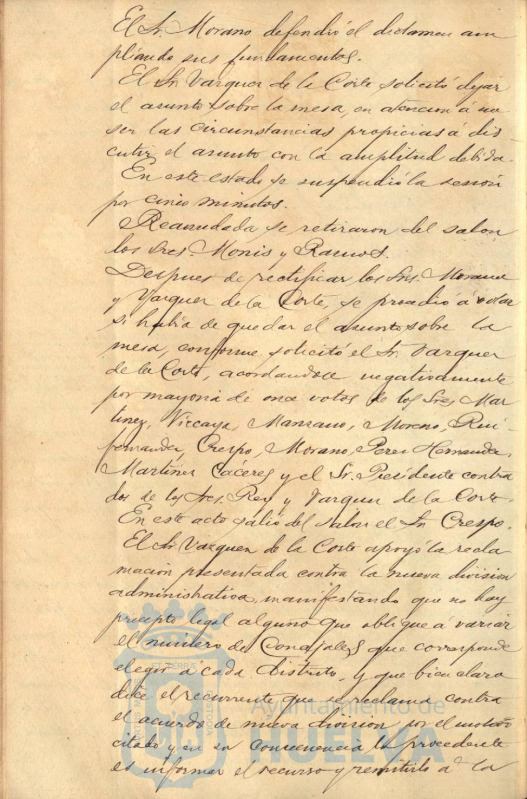 El Sr. Morano defendió el dictamen am
pliando sus fundamentos.
El Sr Vazquez de la Corte solicitó dejar
el asunto sobre la mesa, en atencion á no
ser las circunstancias propicias á dis-
cutir el asunto con la amplitud debida.
En este estado se suspendió la sesión
por cinco minutos.
Reanudada se retiraron del salon
los Sres. Monis y Ramos.
Despues de rectificar los Sres. Morano
y Vazquez de la Corte, se procedió á votar
si habia de quedar el asunto sobre la
mesa, conforme solicitó el Sr. Vazquez
de la Corte, acordandose negativamente
por mayoria de once votos de los Sres Mar
tinez, Vizcaya, Manzano, Moreno, Rui-
fernandez, Crespo, Morano, Perez Hernandez,
Martinez Cáceres y el Sr. Presidente contra
dos de los Sres. Rey y Vazquez de la Corte.
En este acto salió del salon el Sr. Crespo.
El Sr Vazquez de la Corte apoyó la recla
mación presentada contra la nueva division
administrativa, manifestando que no hay
precepto legal alguno que oblique á variar
el número de Concejales que corresponde
elegir á cada distrito, y que bien claro
dice el recurrente que se reclama contra
el acuerdo de nueva division por el motivo
citado y en su consecuencia lo procedente
es informar el recurso y remitirlo á la
Ayuntamiento de
HUELVA